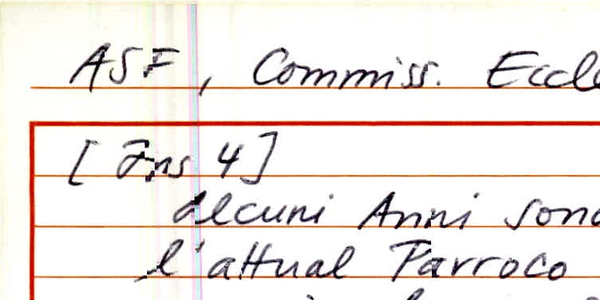 ASF, Commiss. Eccle
[Ins 4]
alcuni Anni sono
l'attual Parroco